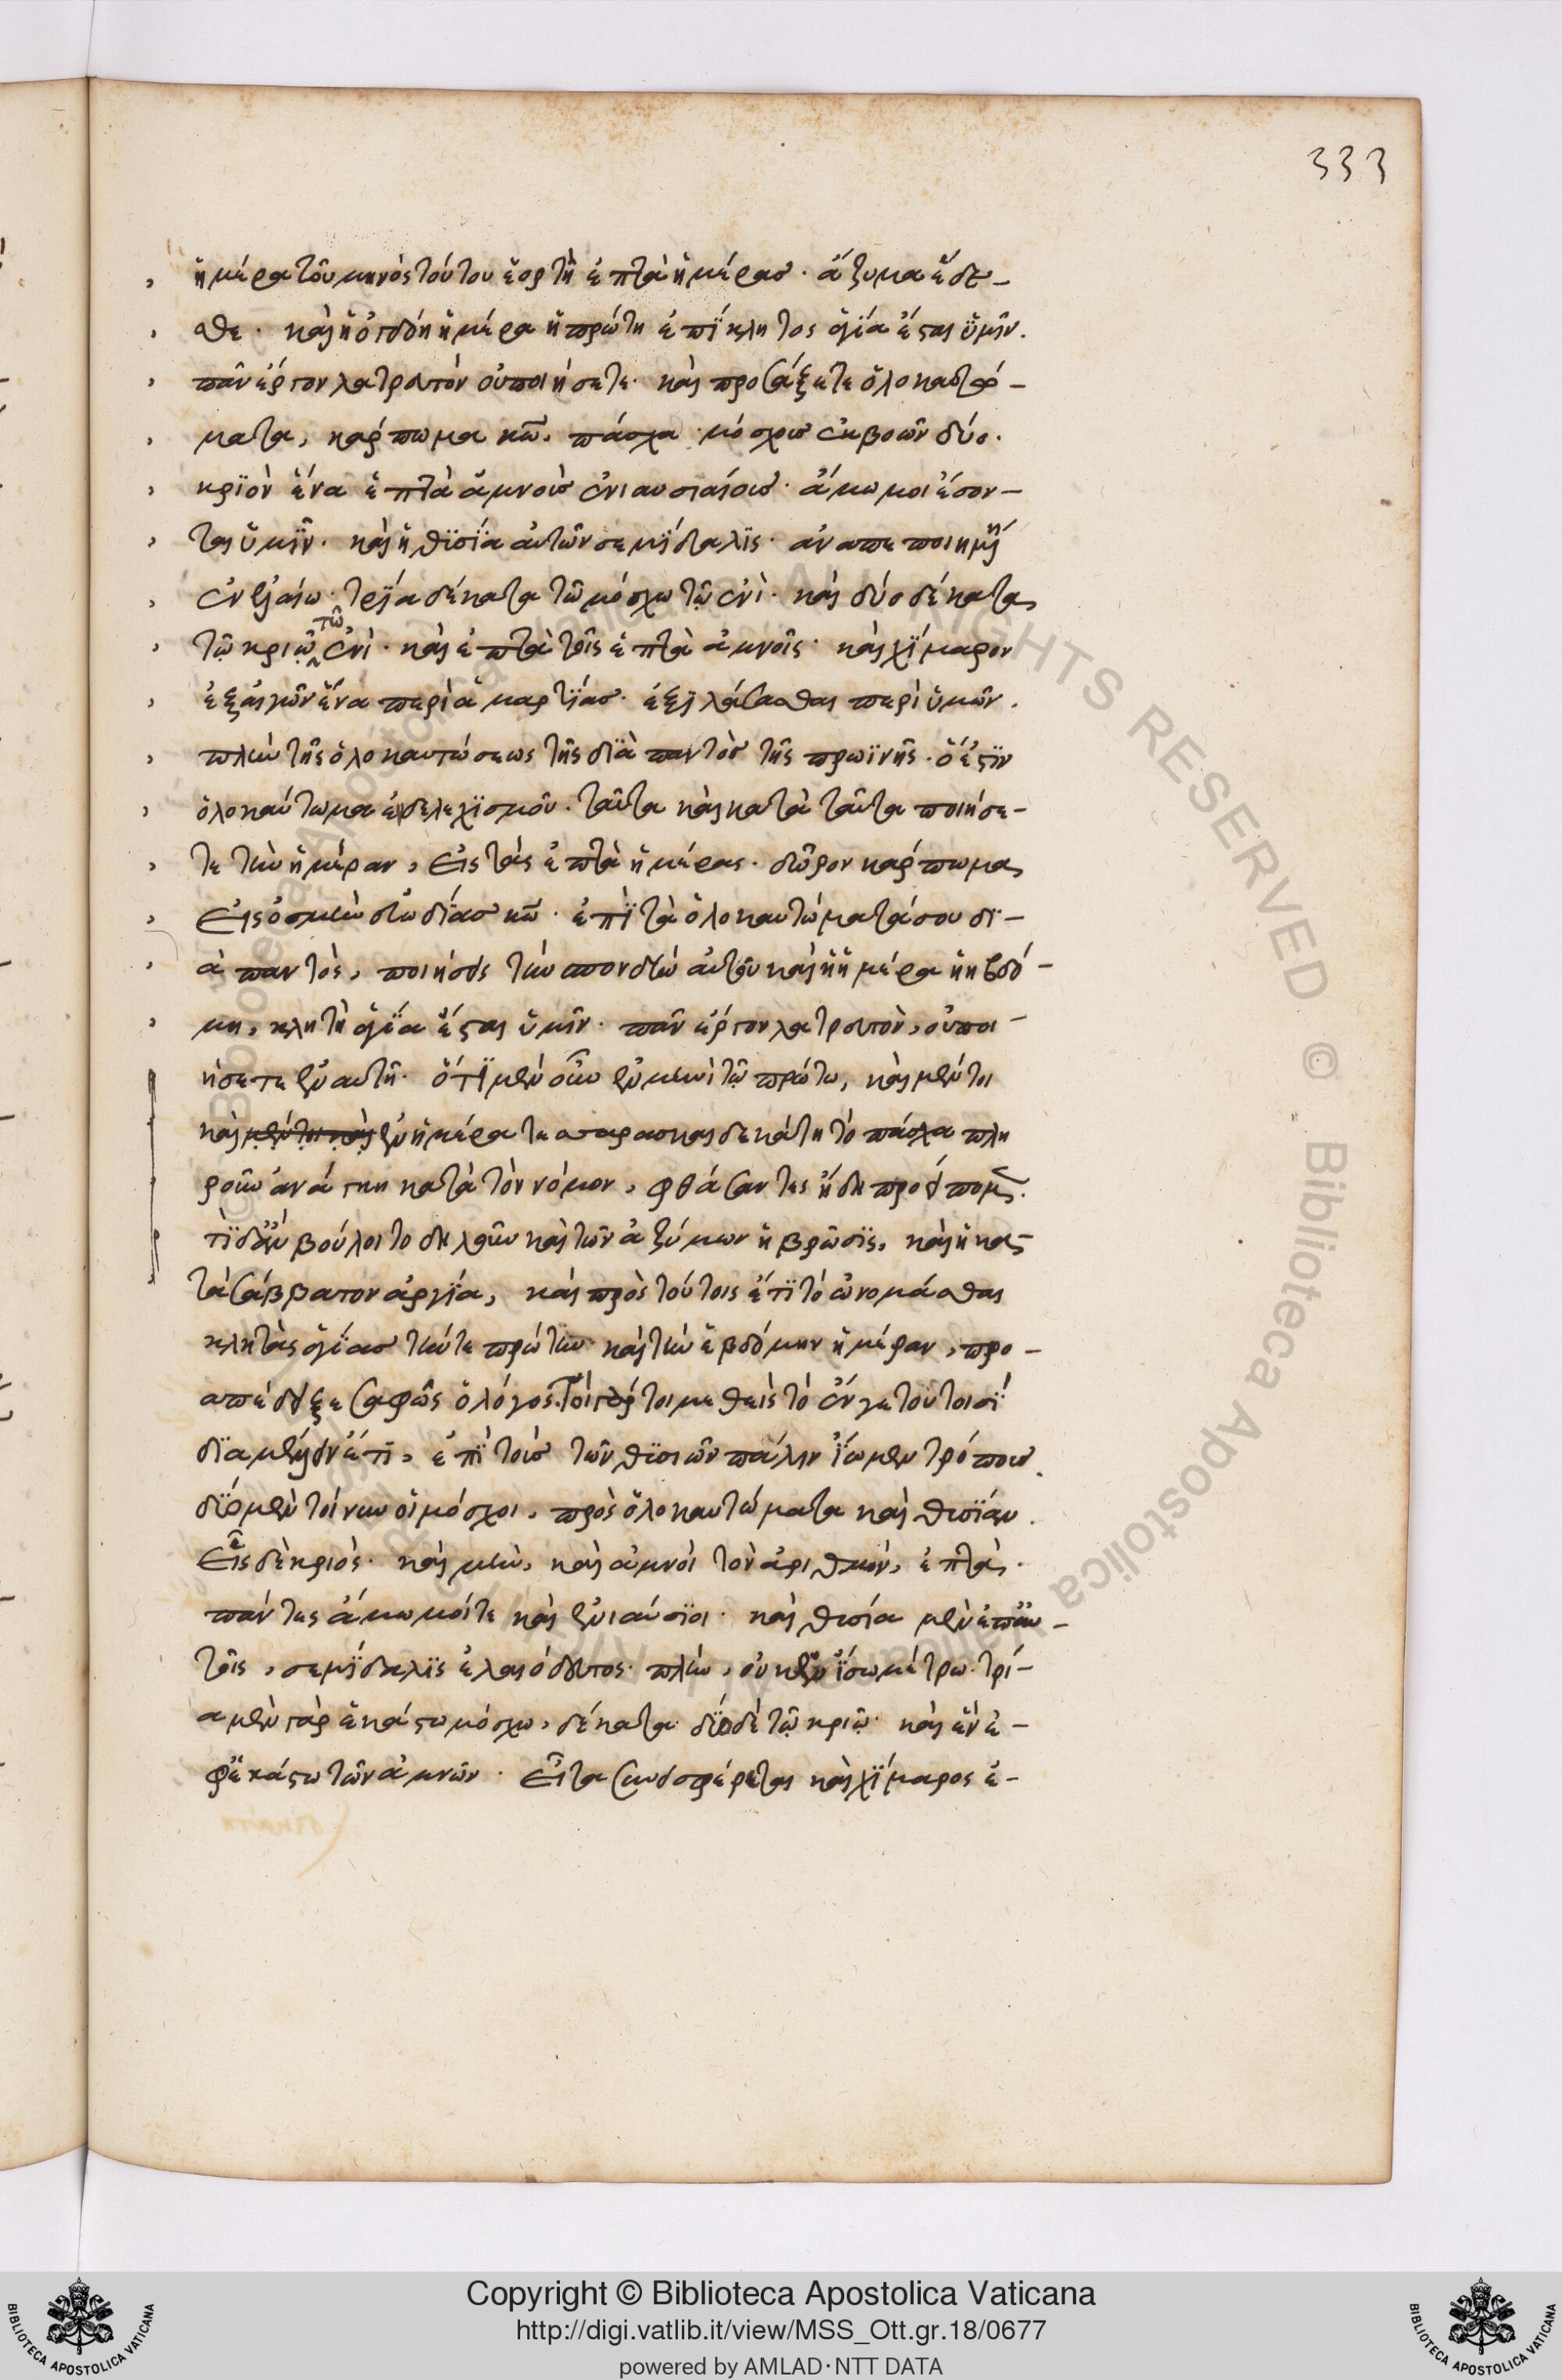 333
ἡμέρα τοῦ μηνὸς τούτου ἑορτὴ ἑπτὰ ἡμέρας· ἄζυμα ἔδε-
σθε· καὶ ἡ ὀγδόη ἡμέρα ἡ πρώτη ἐπίκλητος ἁγία ἔσται ὑμῖν.
πᾶν ἔργον λατρευτὸν οὐ ποιήσετε· καὶ προσάξετε ὁλοκαυτώ-
ματα, κάρπωμα κῶ, πάσχα μόσχους ἐκ βοῶν δύο.
κριὸν ἕνα ἑπτὰ ἀμνοὺς ἐνιαυσιαίους· ἄμωμοι ἔσον-
ται ὑμῖν· καὶ ἡ θϋσία αὐτῶν σεμίδαλις· ἀναπεποιημένη
ἐν ἐλαίω· τρία δέκατα τῶ μόσχω τῷ ἑνὶ· καὶ δύο δέκατα
τῷ κριῷ τῶ ἑνὶ· καὶ ἑπτὰ τοῖς ἑπτὰ ἀμνοῖς· καὶ χίμαρον
ἐξ αἰγῶν ἕνα περὶ ἁμαρτίας· ἐξιλάσασθαι περὶ ὑμῶν.
πλὴν τῆς ὁλοκαυτώσεως τῆς διὰ παντὸς τῆς πρωϊνῆς· ὅ ἐστιν
ὁλοκαύτωμα ἐνδελεχισμοῦ· ταῦτα καὶ κατὰ ταῦτα ποιήσε-
τε τὴν ἡμέραν, εἰς τὰς ἑπτὰ ἡμέρας· δῶρον κάρπωμα,
εἰς ὀσμὴν εὐωδίας κῶ· ἐπὶ τὰ ὁλοκαυτώματά σου δι-
ὰ παντὸς, ποιήσεις τὴν σπονδὴν αὐτοῦ καὶ ἡ ἡμέρα ἡ ἑβδό-
μη, κλητὴ ἁγία ἔσται ὑμῖν· πᾶν ἔργον λατρευτὸν, οὐ ποι-
ήσετε ἐν αυτῆ· ὅτι μὲν οὖν ἐν μηνὶ τῷ πρώτω, καὶ μέντοι
καὶ μέντοι καὶ ἐν ἡμέρα τεσσαρασκαιδεκάτη τὸ πάσχα πλη
ροῦν ἀνάγκη κατὰ τὸν νόμον, φθάσαντες ἤδη προείπομεν.
τί δ' ἂν βούλοιτο δηλοῦν καὶ τῶν ἀζύμων ἡ βρῶσις, καὶ ἡ κα-
τὰ σάββατον ἀργία, καὶ πρὸς τούτοις ἔτι τὸ ὠνομάσθαι
κλητὰς ἁγίας τήν τε πρώτην καὶ τὴν ἑβδόμην ἡμέραν, προ-
απέδειξε σαφῶς ὁ λόγος. τοιγάρτοι μεθεὶς τό ἔν γε τούτοισί
διαμέν ἔτι, ἐπὶ τοὺς τῶν θϋσιῶν πάλιν ἴωμεν τρόπους.
δύο μὲν τοίνυν οἱ μόσχοι, πρὸς ὁλοκαυτώματα καὶ θυσίαν.
εἷς δὲ κριὸς· καὶ μὴν, καὶ ἀμνοὶ τὸν ἀριθμὸν, ἑπτὰ.
πάντες ἄμωμοί τε καὶ ἐνιαύσιοι· καὶ θυσία μὲν ἐπ' αὐ-
τοῖς, σεμίδαλις ἐλαιόδευτος· πλὴν, οὐκ ἐν ἴσω μέτρω· τρί-
α μὲν γὰρ ἑκάστω μόσχω, δέκατα· δύο δὲ τῷ κριῷ· καὶ ἓν ἐ-
φ' ἑκάστω τῶν ἀμνῶν· εἶτα συνεισφέρεται καὶ χίμαρος ἐ-
Copyright © Biblioteca Apostolica Vaticana
http://digi.vatlib.it/view/MSS_Ott.gr.18/0677
powered by AMLAD·NTT DATA